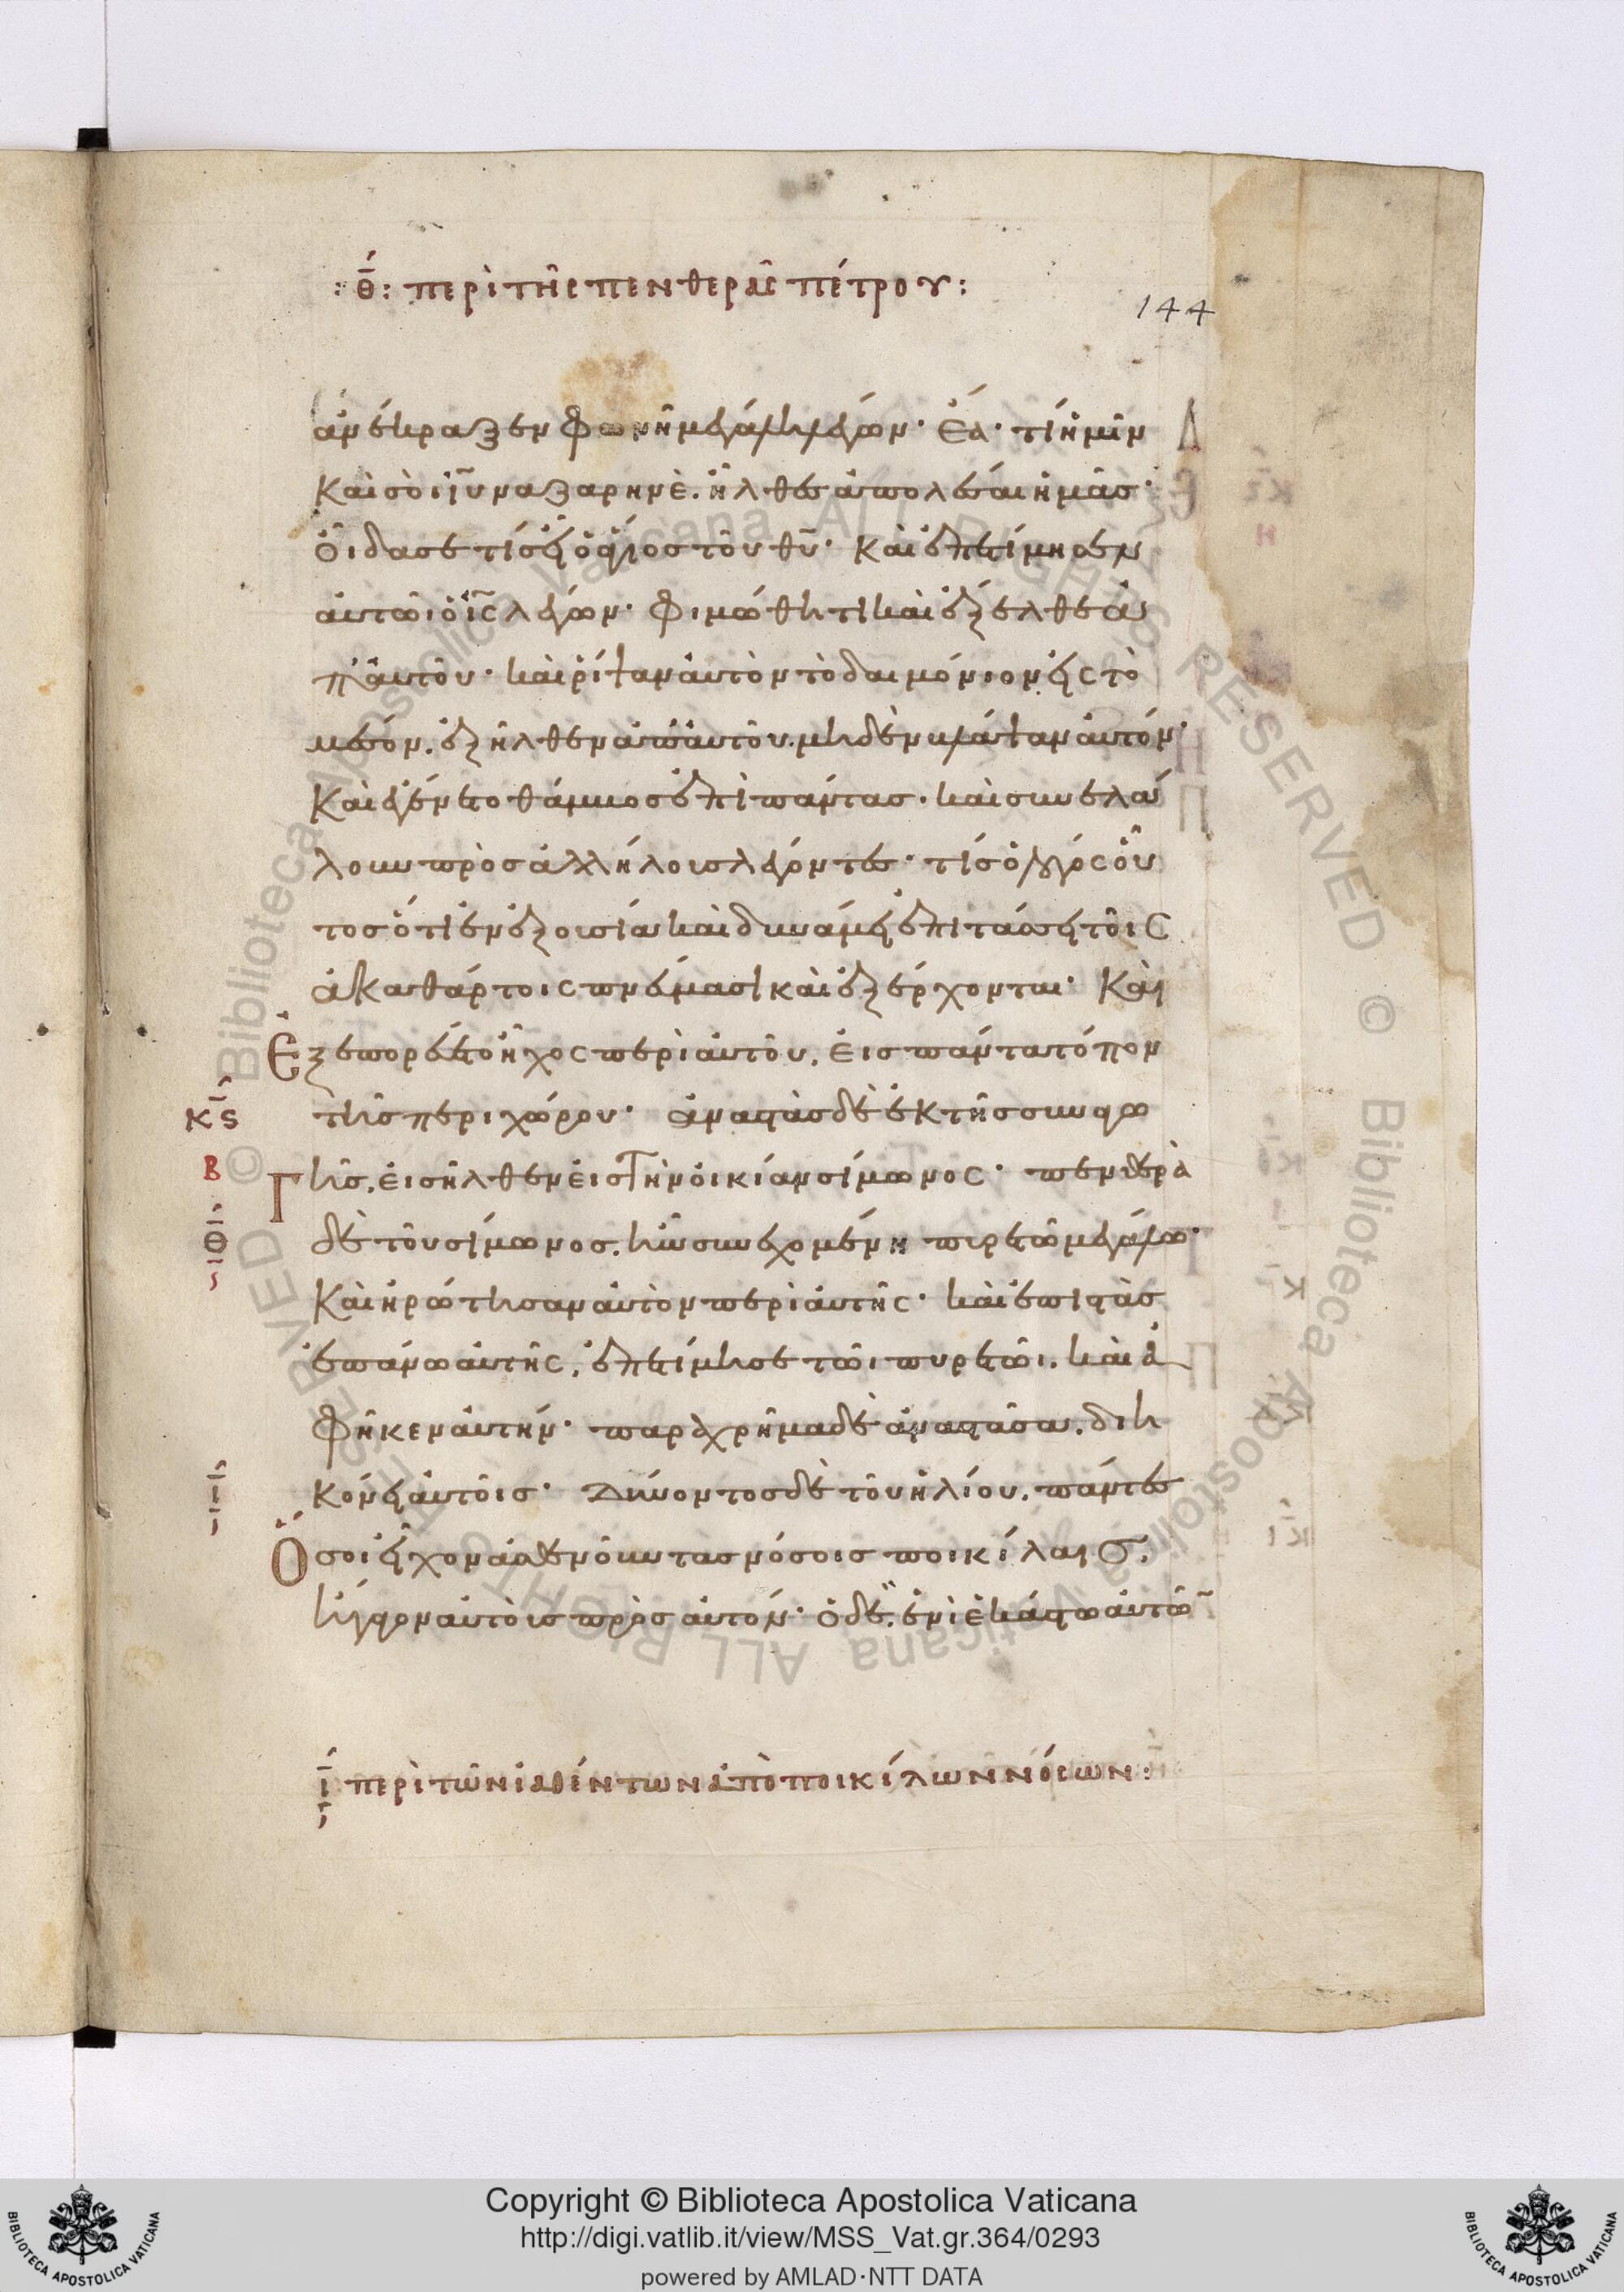 :θ̄: περὶ τῆς πενθερᾶς πέτρου:
144
ἀνέκραξεν φωνῆ μεγάλη λέγων· ἔα· τί ἡμῖν
καὶ σὸι ἰ̅υ̅ ναζαρηνὲ. ἦλθες ἀπολέσαι ἡμᾶς·
ὀ͂ιδά σε τίς εἶ ὁ ἅγιος τοῦ θ̅υ̅· καὶ ἐπετίμησεν
αὐτῶι ὁ ι̅ς̅ λέγων· φιμώθητι καὶ ἔξελθε ἀ
π' αὐτοῦ· καὶ ῥίψαν αὐτὸν τὸ δαιμόνιον εἰς τὸ
μέσον. ἐξῆλθεν ἀπ' αὐτοῦ. μηδὲν βλάψαν αὐτόν·
καὶ ἐγένετο θάμβος ἐπὶ πάντας. καὶ συνελά
λουν πρὸς ἀλλήλους λέγοντες· τίς ὁ λόγος οὗ
τος ὅτι ἐν ἐξουσία καὶ δυνάμει ἐπιτάσσει τοῖς
ἀκαθάρτοις πνεύμασι καὶ ἐξέρχονται· καὶ
Ἐξεπορεύετο ἦχος περὶ αὐτοῦ. εἰς πάντα τόπον
κ̅ς̅ τῆς περιχώρου· ἀναστὰς δὲ ἐκ τῆς συναγω
β Γῆς. εἰσῆλθεν εἰς τὴν οἰκίαν σίμωνος· πενθερὰ
θ̅ δὲ τοῦ σίμωνος. ἦν συνεχομένη πυρετῶ μεγάλω·
καὶ ἠρώτησαν αὐτὸν περὶ αὐτῆς· καὶ ἐπιστὰς
ἐπάνω αὐτῆς, ἐπετίμησε τῶι πυρετῶι. καὶ ἀ
φῆκεν αὐτήν· παραχρῆμα δὲ ἀναστᾶσα. διη
ι̅ κόνει αὐτοῖς· Δύνοντος δὲ τοῦ ἡλίου. πάντες
Ὅσοι εἶχον ἀσθενοῦντας νόσοις ποικίλαις,
ἤγαγον αὐτοὺς πρὸς αὐτόν· ὁ δὲ. ἑνὶ ἑκάστω αὐτῶν
ι̅ περὶ τῶν ἰαθέντων ἀπὸ ποικίλων νόσων:
Copyright © Biblioteca Apostolica Vaticana
http://digi.vatlib.it/view/MSS_Vat.gr.364/0293
powered by AMLAD·NTT DATA